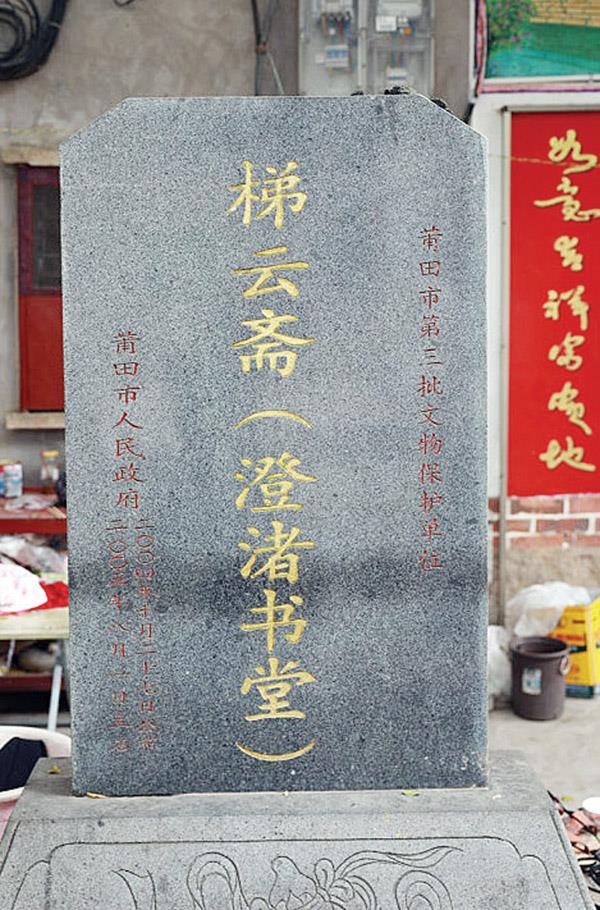 莆田市第三批文物保护单位
梯云斋（澄渚书堂）
莆田市人民政府
二〇〇四年十月二十七日公布
二〇〇五年八月一日立石
如意吉祥富贵地